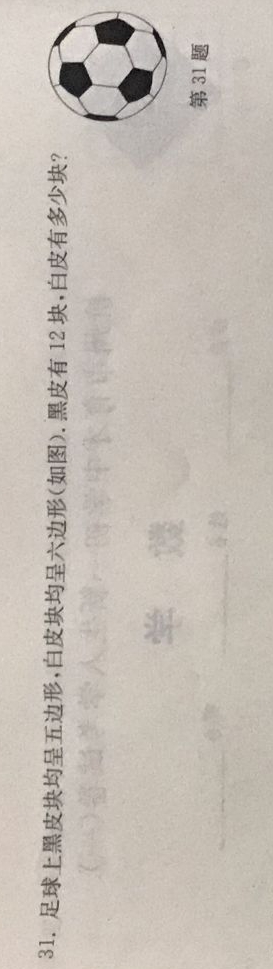 31. 足球上黑皮块均呈五边形,白皮块均呈六边形(如图).黑皮有 12 块,白皮有多少块?
第 31 题